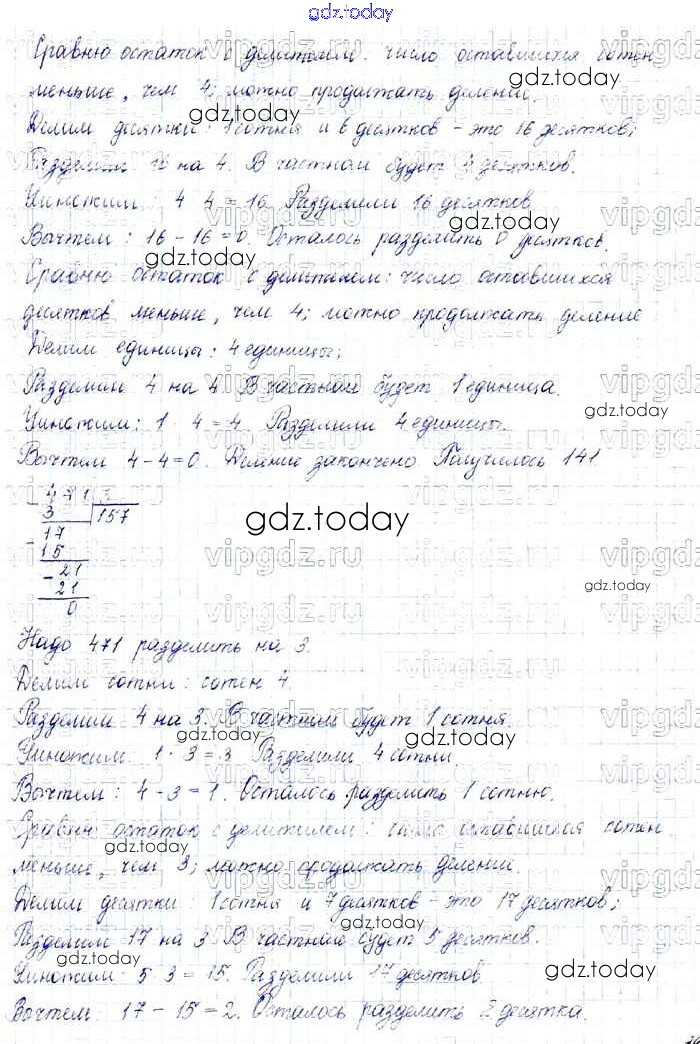 gdz.today
Сравню остаток с делителем: число оставшихся сотен
меньше, чем 4; можно продолжать деление.
Делим десятки: 1 сотня и 6 десятков - это 16 десятков;
Разделим 16 на 4. В частном будет 4 десятков.
Умножим: 4 · 4 = 16. Разделили 16 десятков
Вычтем: 16 - 16 = 0. Осталось разделить 0 десятков.
Сравню остаток с делителем: число оставшихся
десятков меньше, чем 4; можно продолжать деление
Делим единицы: 4 единицы;
Разделим 4 на 4. В частном будет 1 единица.
Умножим: 1 · 4 = 4. Разделили 4 единицы.
Вычтем 4 - 4 = 0. Деление закончено. Получилось 141
471 3
3 157
17
15
21
21
0
Надо 471 разделить на 3.
Делим сотни: сотен 4
Разделим 4 на 3. В частном будет 1 сотня.
Умножим: 1 · 3 = 3. Разделили 4 сотни.
Вычтем: 4 - 3 = 1. Осталось разделить 1 сотню.
Сравню остаток с делителем: число оставшихся сотен
меньше, чем 3; можно продолжать деление.
Делим десятки: 1 сотня и 7 десятков - это 17 десятков;
Разделим 17 на 3. В частном будет 5 десятков.
Умножим: 5 · 3 = 15. Разделили 17 десятков
Вычтем: 17 - 15 = 2. Осталось разделить 2 десятка.